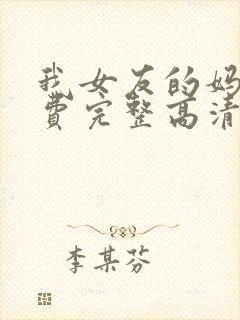 我女友的妈
费完整高清
李某芬